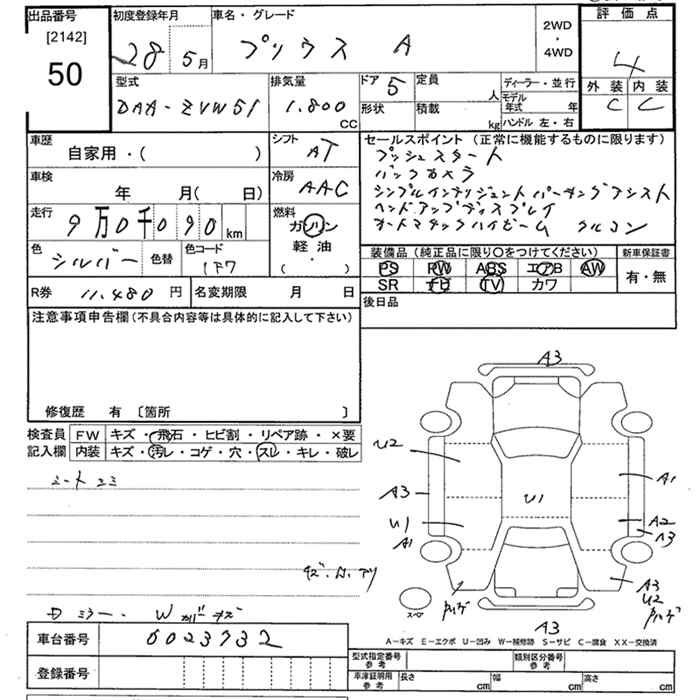 出品番号
[2142]
50
初度登録年月
28年 5月
車名・グレード
プリウス A
2WD
・
4WD
評価点
4
外装 内装
C C
型式
DAA-ZVW51
排気量
1.800
CC
ドア 5
定員
人
形状
積載
kg
ディーラー・並行
モデル年式 年
ハンドル 左・右
車歴
自家用・( )
シフト
AT
車検
年 月( 日)
冷房
AAC
走行
9万0千090km
燃料
ガソリン
軽油
( ・ )
色 シルバー
色替
色コード
1F7
R券 11.480 円
名変期限 月 日
セールスポイント (正常に機能するものに限ります)
プッシュスタート
バックカメラ
シンプルインテリジェントパーキングアシスト
ヘッドアップディスプレイ
オートマチックハイビーム クルコン
装備品 (純正品に限り○をつけてください)
新車保証書
PS PW ABS エアB AW
有・無
SR TV カワ
後日品
注意事項申告欄 (不具合内容等は具体的に記入して下さい)
修復歴 有 [箇所 ]
検査員
記入欄
FW キズ・飛石・ヒビ割・リペア跡・×要
内装 キズ・汚レ・コゲ・穴・スレ・キレ・破レ
A3
U2
A3
U1
A1
U1
A1
A2
A3
A3
U2
スペア
A3
Dミラー
車台番号 6023732
登録番号
A-キズ E-エクボ U-凹み W-補修跡 S-サビ C-腐食 XX-交換済
型式指定番号
参考
類別区分番号
参考
車庫証明用
参考
長さ cm
幅 cm
高さ cm